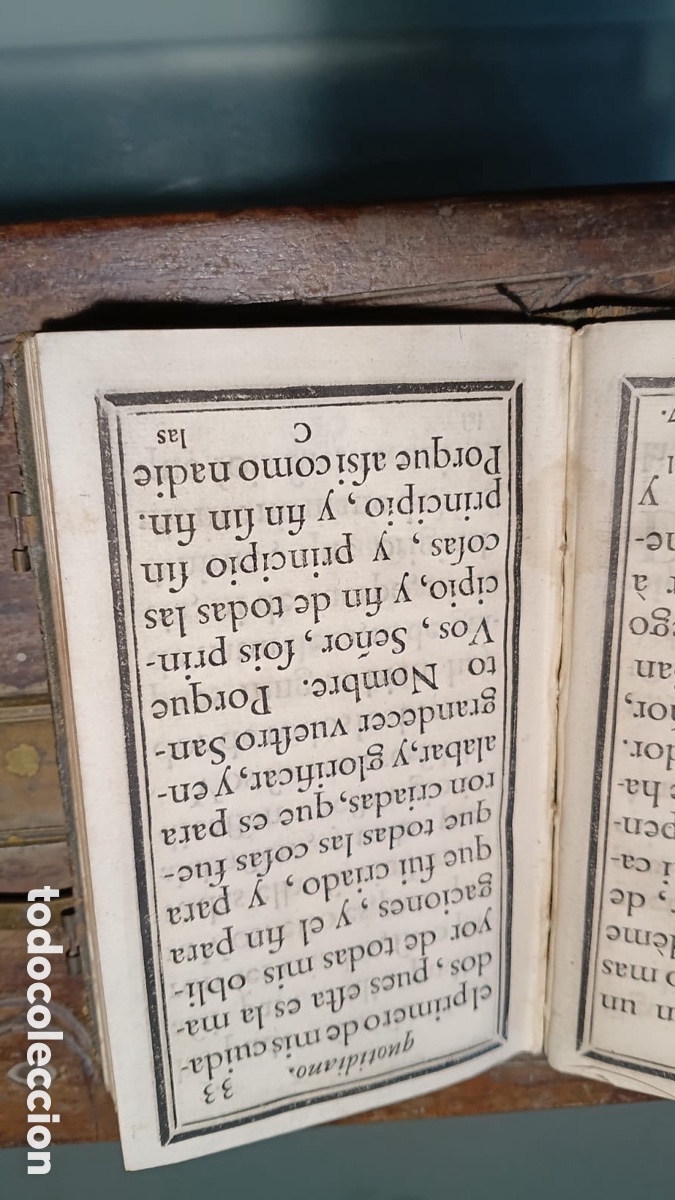 quotidiano. 33
el primero de mis cuida-
dos, pues eſta es la ma-
yor de todas mis obli-
gaciones, y el fin para
que fui criado, y para
que todas las coſas fue-
ron criadas, que es para
alabar, y glorificar, y en-
grandecer vueſtro San-
to Nombre. Porque
Vos, Señor, ſois prin-
cipio, y fin de todas las
coſas, y principio ſin
principio, y fin ſin fin.
Porque aſsi como nadie
C las
n un
mas
dème
, de
i ca-
pen-
ha-
dor.
ñor,
an
ego
r à
ne-
y
7.
todocoleccion